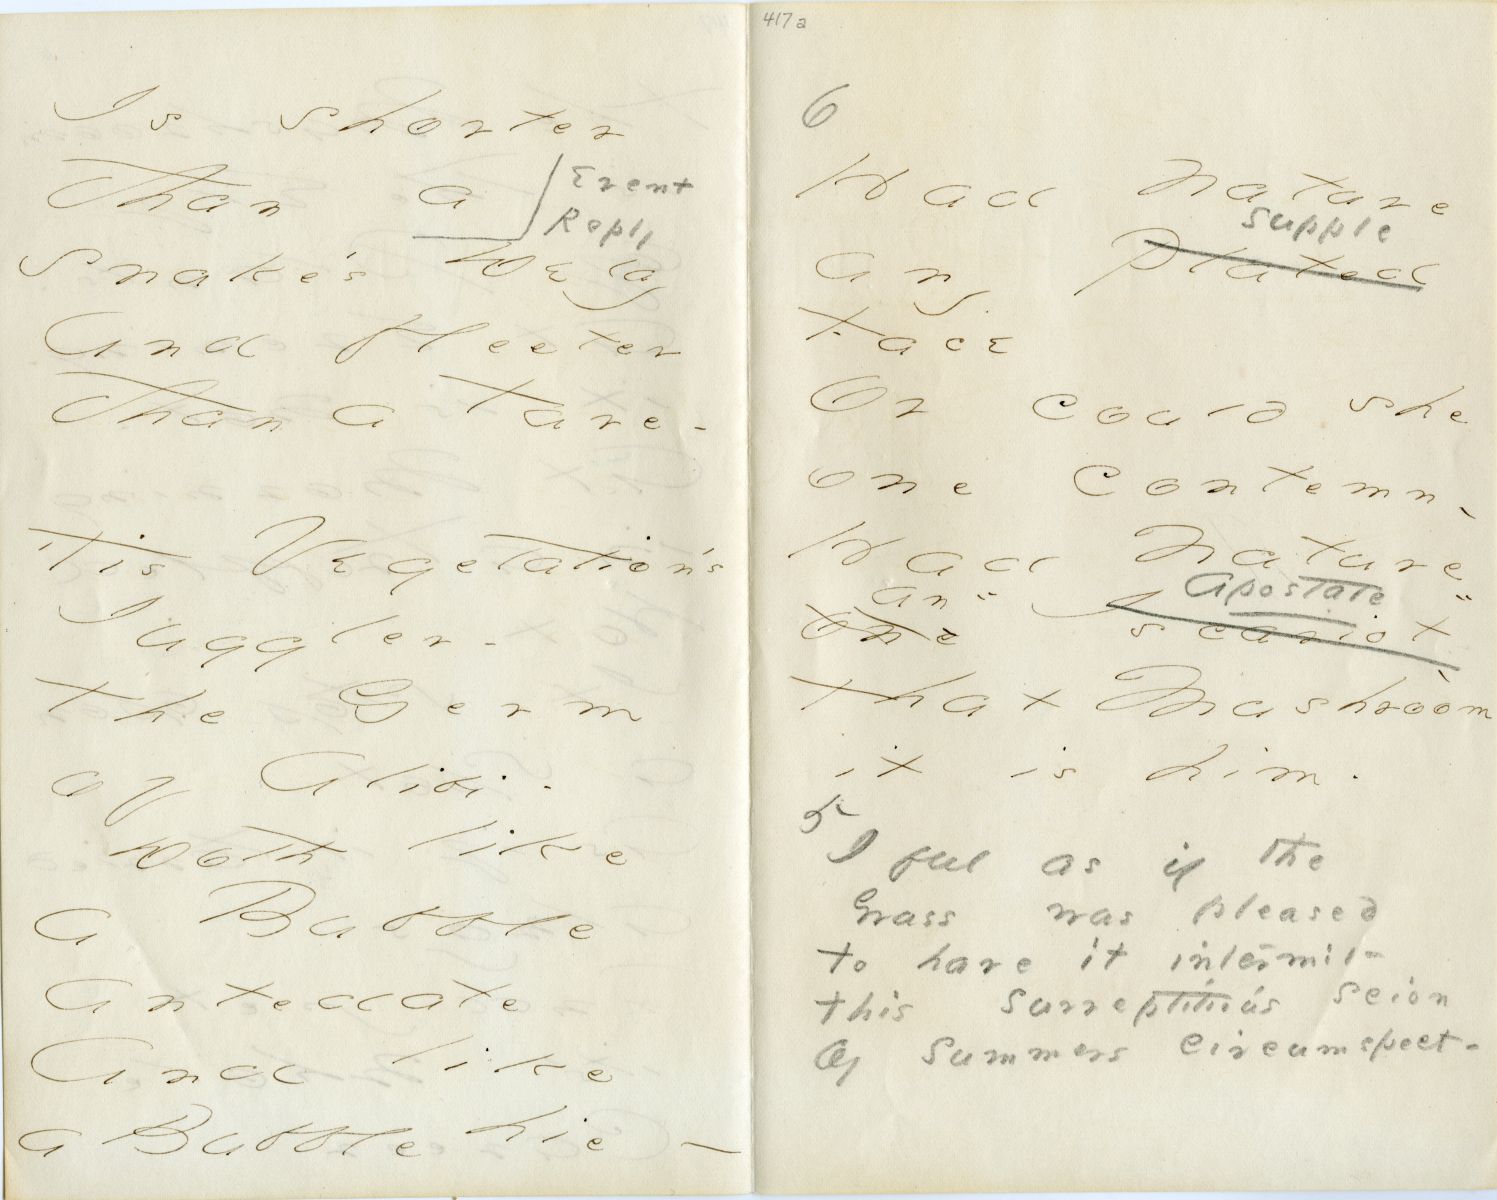 Is shorter
than a
Event
Reply
Snake's Delay
And fleeter
than a Tare -
'Tis Vegetation's
Juggler -
the Germ
of Alibi -
Doth like
a Bubble
antedate
And like
a Bubble, hie -
417a
6
Had Nature
supple
any plated
Face
Or could she
one contemn -
Had Nature
an" Apostate "
one Iscariot
that Mushroom
it is him.
5
I feel as if the
Grass was pleased
to have it intermit -
this surreptitious Scion
Of Summer's circumspect -